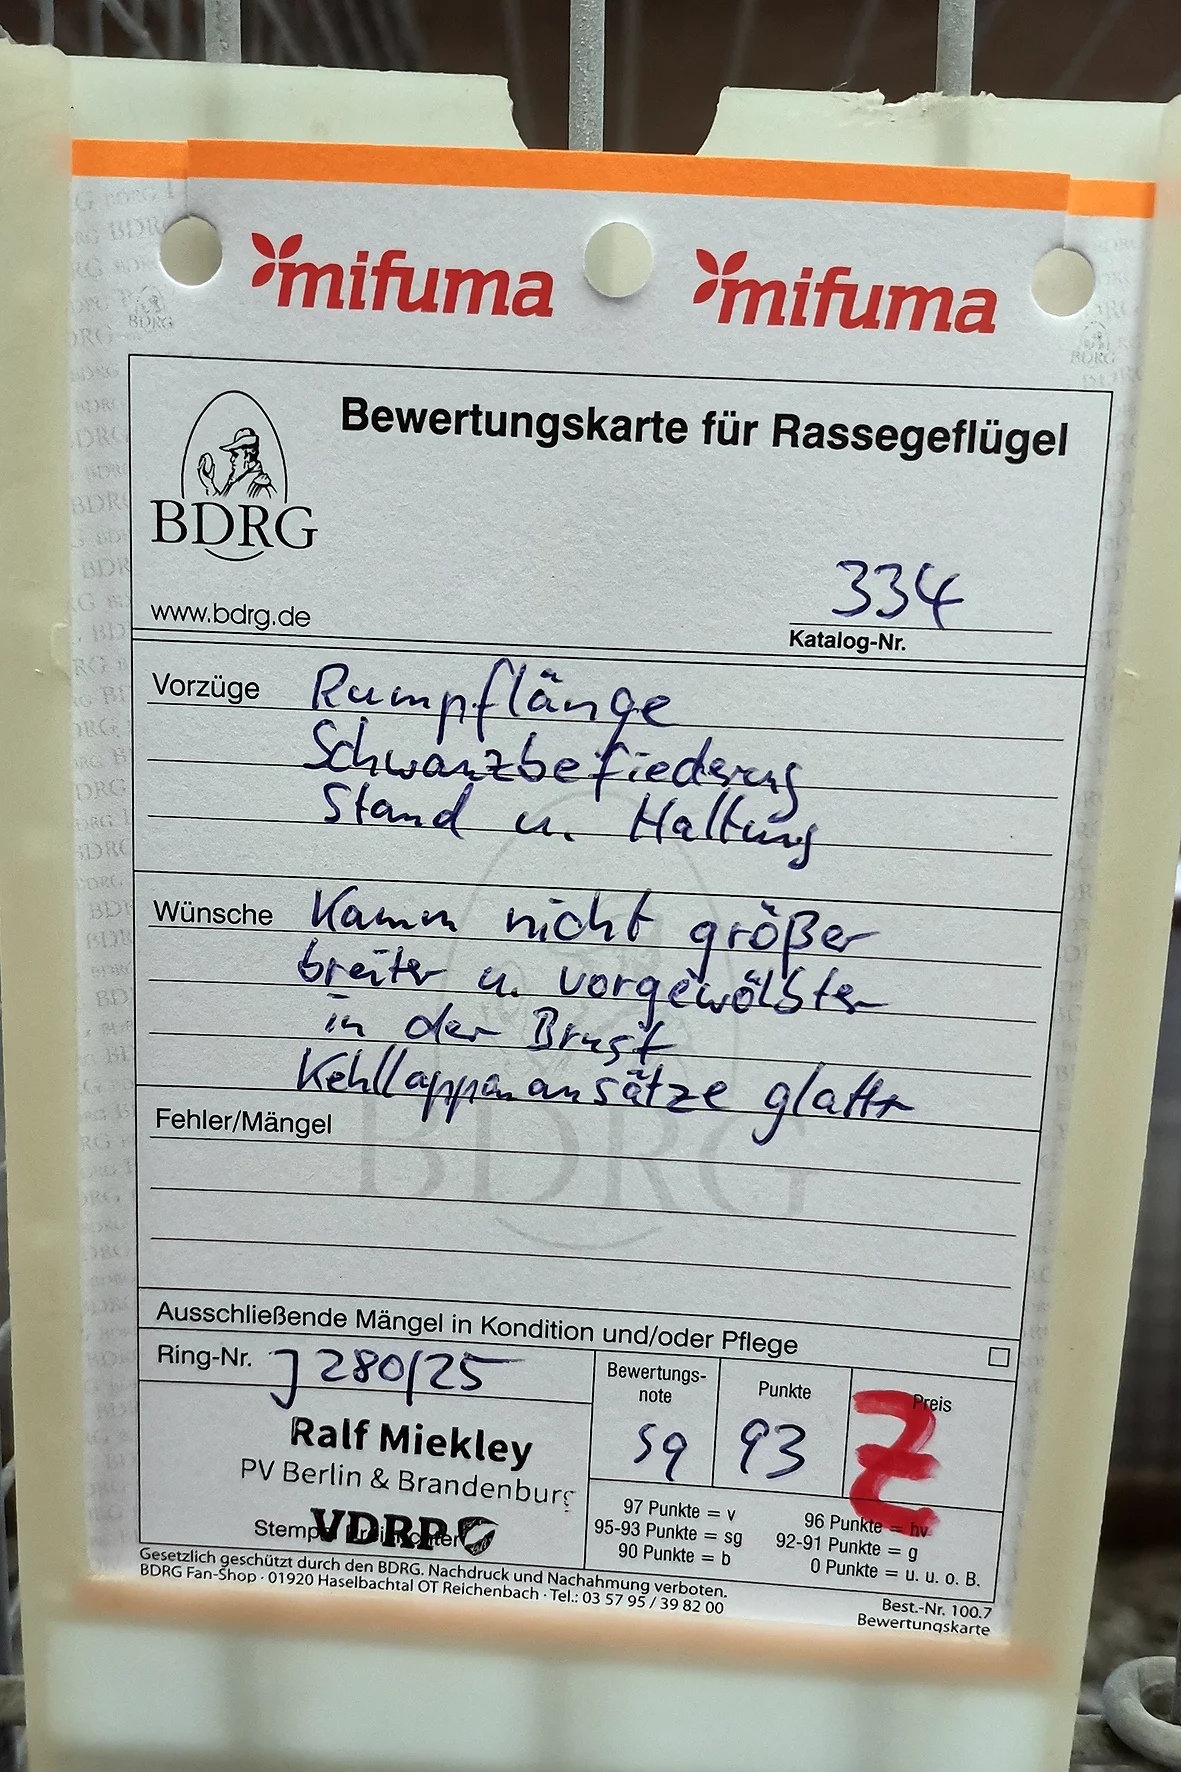 mifuma mifuma
Bewertungskarte für Rassegeflügel
BDRG
www.bdrg.de
334
Katalog-Nr.
Vorzüge Rumpflänge
Schwanzbefiederung
Stand u. Haltung
Wünsche Kamm nicht größer
breiter u. vorgewölbter
in der Brust
Kehllappenansätze glatter
Fehler/Mängel
Ausschließende Mängel in Kondition und/oder Pflege
Ring-Nr. J 280/25
Bewertungs-
note
sg
Punkte
93
Preis
Z
Ralf Miekley
PV Berlin & Brandenburg
VDRP
97 Punkte = v 96 Punkte = hv
95-93 Punkte = sg 92-91 Punkte = g
90 Punkte = b 0 Punkte = u. u. o. B.
Gesetzlich geschützt durch den BDRG. Nachdruck und Nachahmung verboten.
BDRG Fan-Shop · 01920 Haselbachtal OT Reichenbach · Tel.: 03 57 95 / 39 82 00
Best.-Nr. 100.7
Bewertungskarte